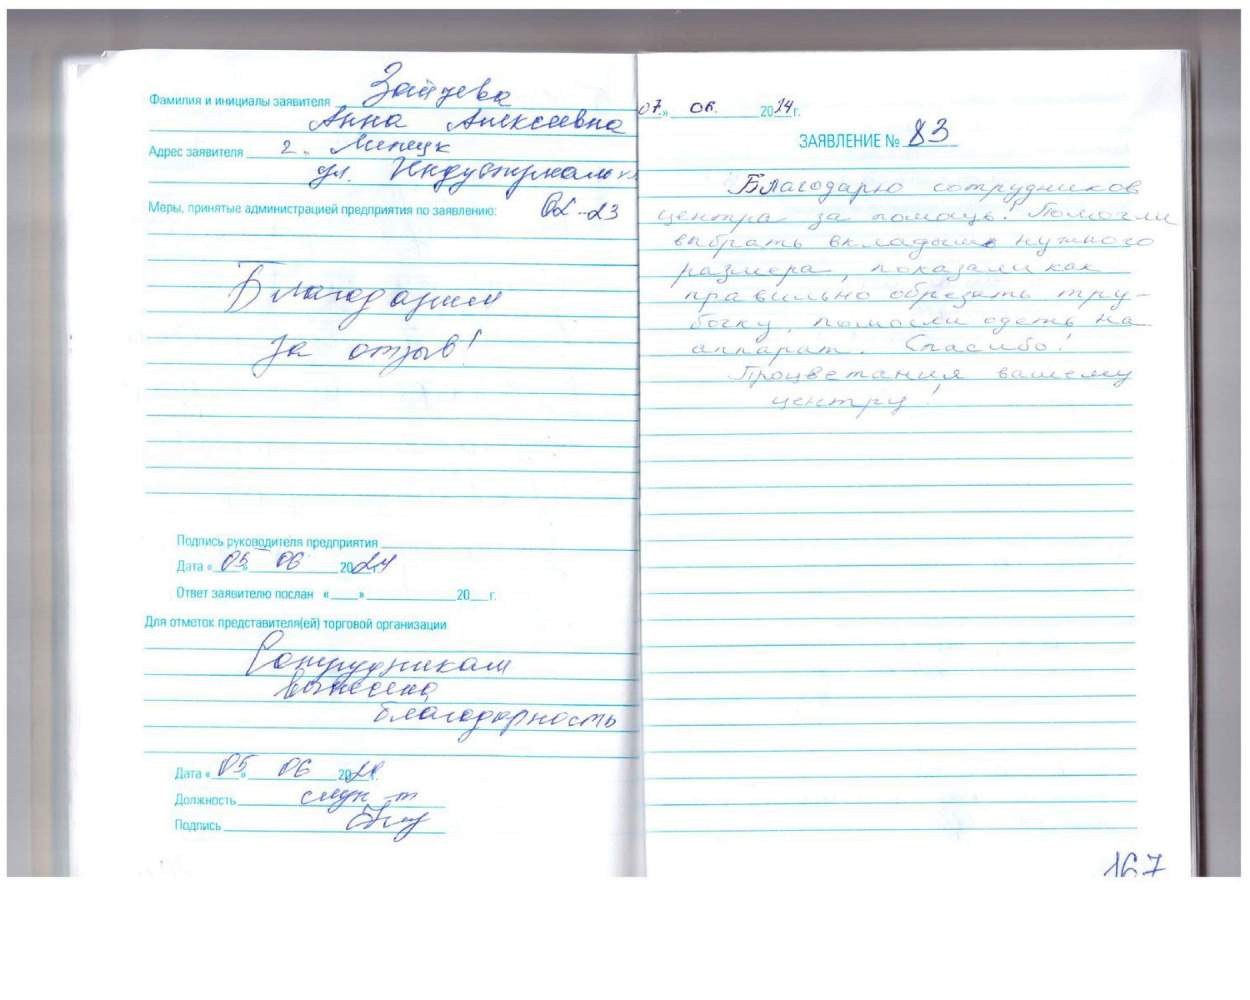 Фамилия и инициалы заявителя Зайцева
Анна Алексеевна
Адрес заявителя г. Липецк
ул. Индустриальн
Меры, принятые администрацией предприятия по заявлению: 62-23
Благодарим
за отзыв!
Подпись руководителя предприятия
Дата «05» 06 2024 г.
Ответ заявителю послан «___» 20__ г.
Для отметок представителя(ей) торговой организации
Сотрудникам
вынесена
благодарность
Дата «05» 06 2024 г.
Должность
Подпись
07.» 06. 2024 г.
ЗАЯВЛЕНИЕ № 83
Благодарю сотрудников
центра за помощь! Помогли
выбрать вкладыш нужного
размера, показали как
правильно обрезать тру-
бочку, помогли одеть на
аппарат. Спасибо!
Процветания вашему
центру!
167